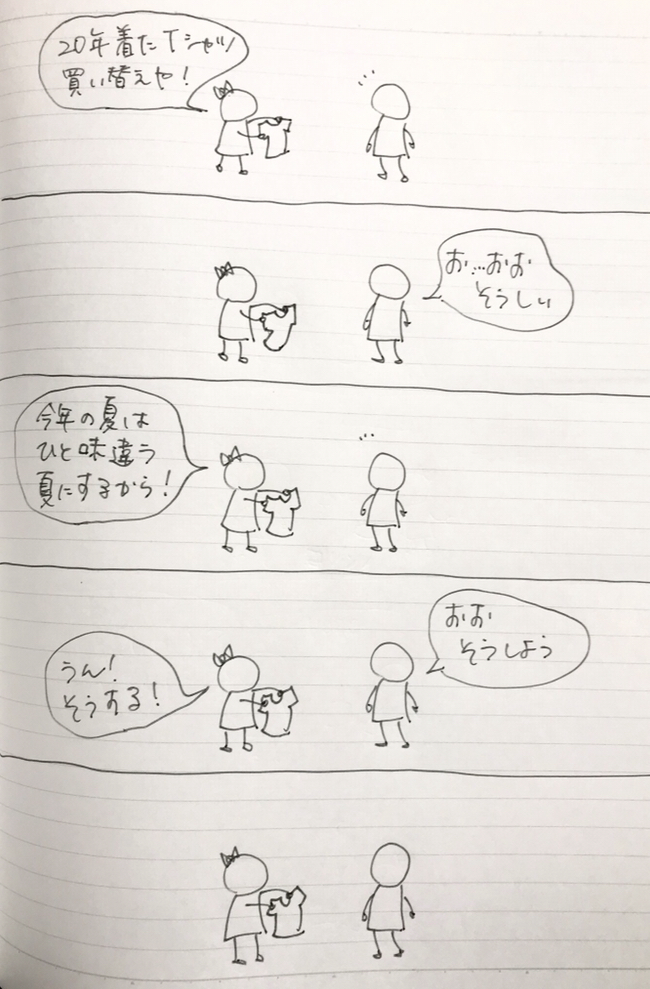 20年着たTシャツ
買い替えや！
お…おお
そうしい
今年の夏は
ひと味違う
夏にするから！
おお
そうしよう
うん！
そうする！